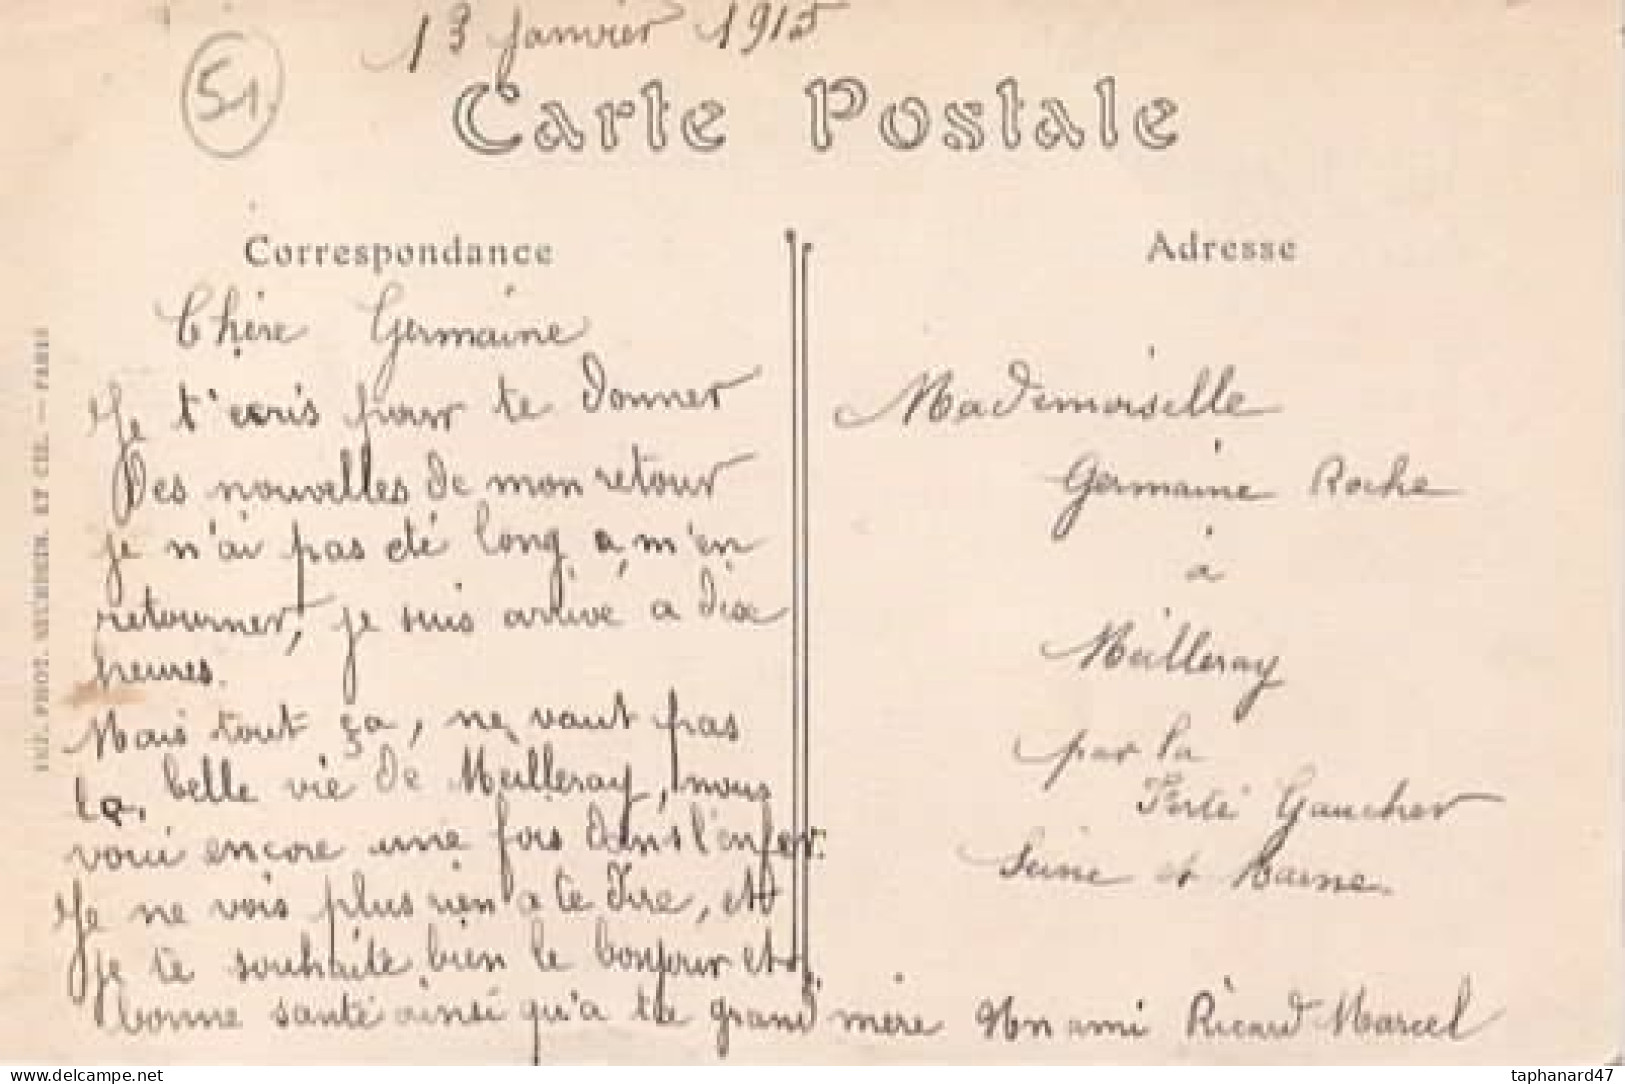 13 janvier 1915
51.
Carte Postale
Correspondance
Chère Germaine
Je t'ecris pour te donner
Des nouvelles de mon retour
je n'ai pas eté long a m'en
retourner, je suis arrivé a dix
heures.
Mais tout ça, ne vaut pas
la belle vie de Meilleray, nous
voici encore une fois dans l'enfer.
Je ne vois plus rien a te dire, et
je te souhaite bien le bonjour et
bonne santé ainsi qu'a ta grand mère Un ami Ricard Marcel
Adresse
Mademoiselle
Germaine Roche
à
Meilleray
par la
Ferté Gaucher
Seine et Marne
IMP. PHOT. NEURDEIN ET CIE. — PARIS
taphanard47